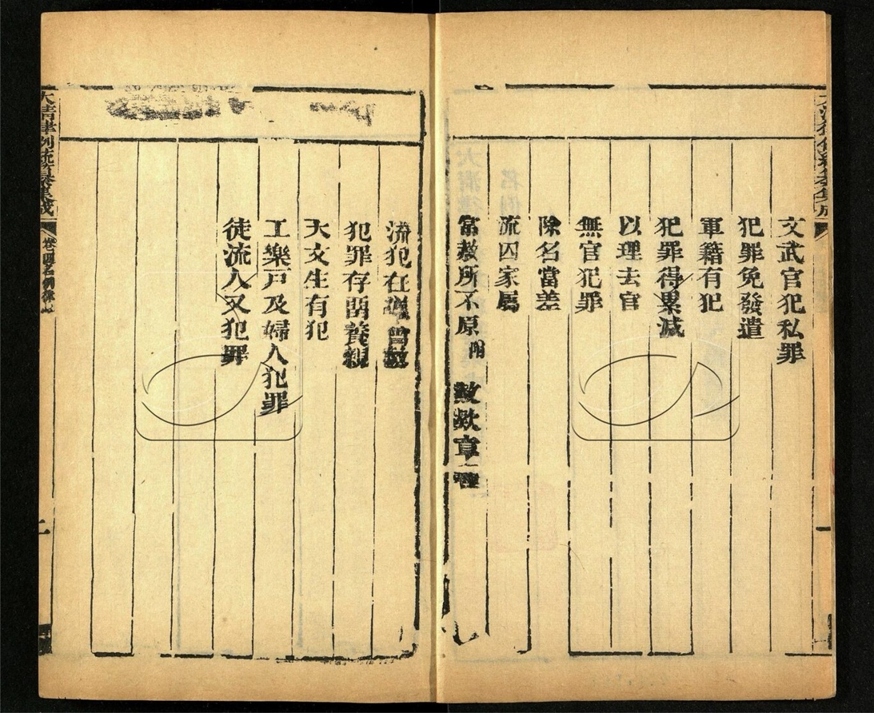 文武官犯私罪
犯罪免發遣
軍籍有犯
犯罪得累減
以理去官
無官犯罪
除名當差
流囚家屬
常赦所不原 附 赦款章程
流犯在道會赦
犯罪存留養親
天文生有犯
工樂戶及婦人犯罪
徒流人又犯罪
大清律例統纂集成
卷四名例律上
二